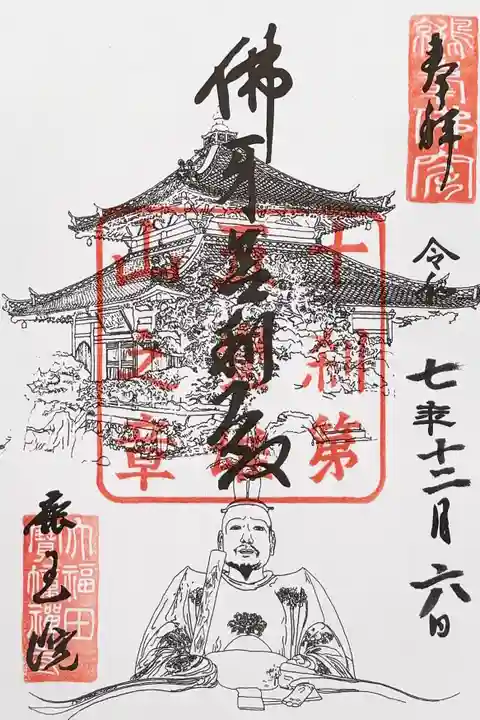 奉拝
令和七年十二月六日
佛牙舎利殿
十刹第
山之章
鹿王院
大福田
寶幢禪